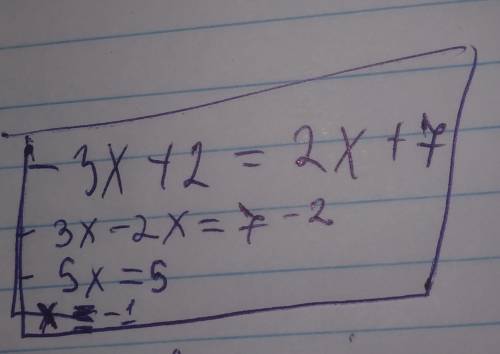 - 3x + 2 = 2x + 7
- 3x - 2x = 7 - 2
- 5x = 5
x = -1